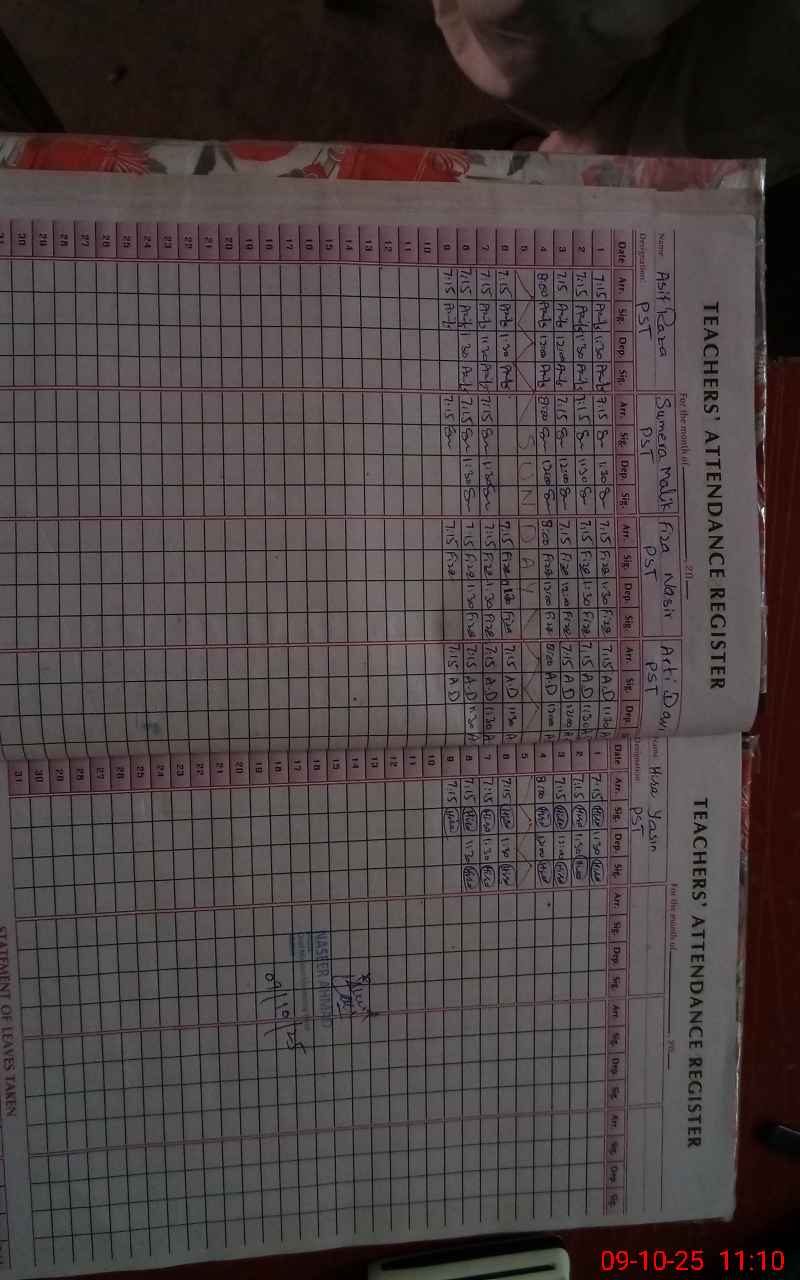 TEACHERS' ATTENDANCE REGISTER
For the month of 20
Name: Asif Raza Sumera Malik Fiza Nasir Arti Davi
Designation: PST PST PST PST
Date Arr. Sig. Dep. Sig. Arr. Sig. Dep. Sig. Arr. Sig. Dep. Sig. Arr. Sig. Dep.
1 7:15 1:30 7:15 Su 1:30 Su 7:15 Fiza 1:30 Fiza 7:15 A.D 1:30
2 7:15 1:30 7:15 Su 1:30 Su 7:15 Fiza 1:30 Fiza 7:15 A.D 1:30
3 7:15 12:00 7:15 Su 12:00 Su 7:15 Fiza 12:00 Fiza 7:15 A.D 12:00
4 8:00 12:00 8:00 Su 12:00 Su 8:00 Fiza 12:00 Fiza 8:00 A.D 12:00
5 SUNDAY
6 7:15 1:30 7:15 Fiza Fiza 7:15 A.D 1:30
7 7:15 1:30 7:15 Su 1:30 Su 7:15 Fiza 1:30 Fiza 7:15 A.D 1:30
8 7:15 1:30 7:15 Su 1:30 Su 7:15 Fiza 1:30 Fiza 7:15 A.D 1:30
9 7:15 7:15 Su 7:15 Fiza 7:15 A.D
10
11
12
13
14
15
16
17
18
19
20
21
22
23
24
25
26
27
28
29
30
31
TEACHERS' ATTENDANCE REGISTER
For the month of 20
Name: Hira Yasin
Designation: PST
Date Arr. Sig. Dep. Sig. Arr. Sig. Dep. Sig. Arr. Sig. Dep. Sig. Arr. Sig. Dep. Sig.
1 7:15 Hira 1:30 Hira
2 7:15 Hira 1:30 Hira
3 7:15 Hira 12:00 Hira
4 8:00 Hira 12:00 Hira
5
6 7:15 Hira 1:30 Hira
7 7:15 Hira 1:30 Hira
8 7:15 Hira 1:30 Hira
9 7:15 Hira
10
11
12
13
14
15
16
17
18
19
20
21
22
23
24
25
26
27
28
29
30
31
NASEER AHMED
09/10/25
STATEMENT OF LEAVES TAKEN
09-10-25 11:10